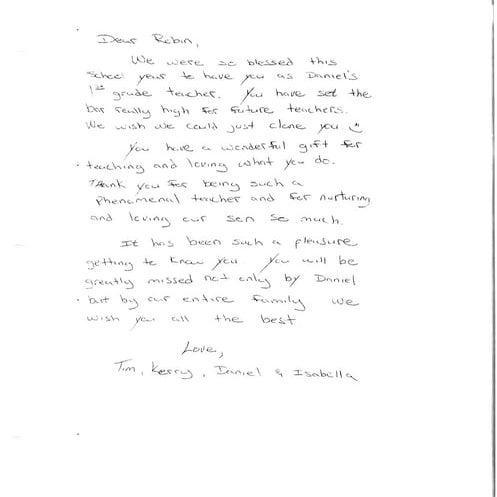 Dear Robin,
We were so blessed this
school year to have you as Daniel's
1st grade teacher. You have set the
bar really high for future teachers.
We wish we could just clone you
You have a wonderful gift for
teaching and loving what you do.
Thank you for being such a
phenomenal teacher and for nurturing
and loving our son so much.
It has been such a pleasure
getting to know you. You will be
greatly missed not only by Daniel
but by our entire family We
wish you all the best
Love,
Tim, Kerry, Daniel & Isabella